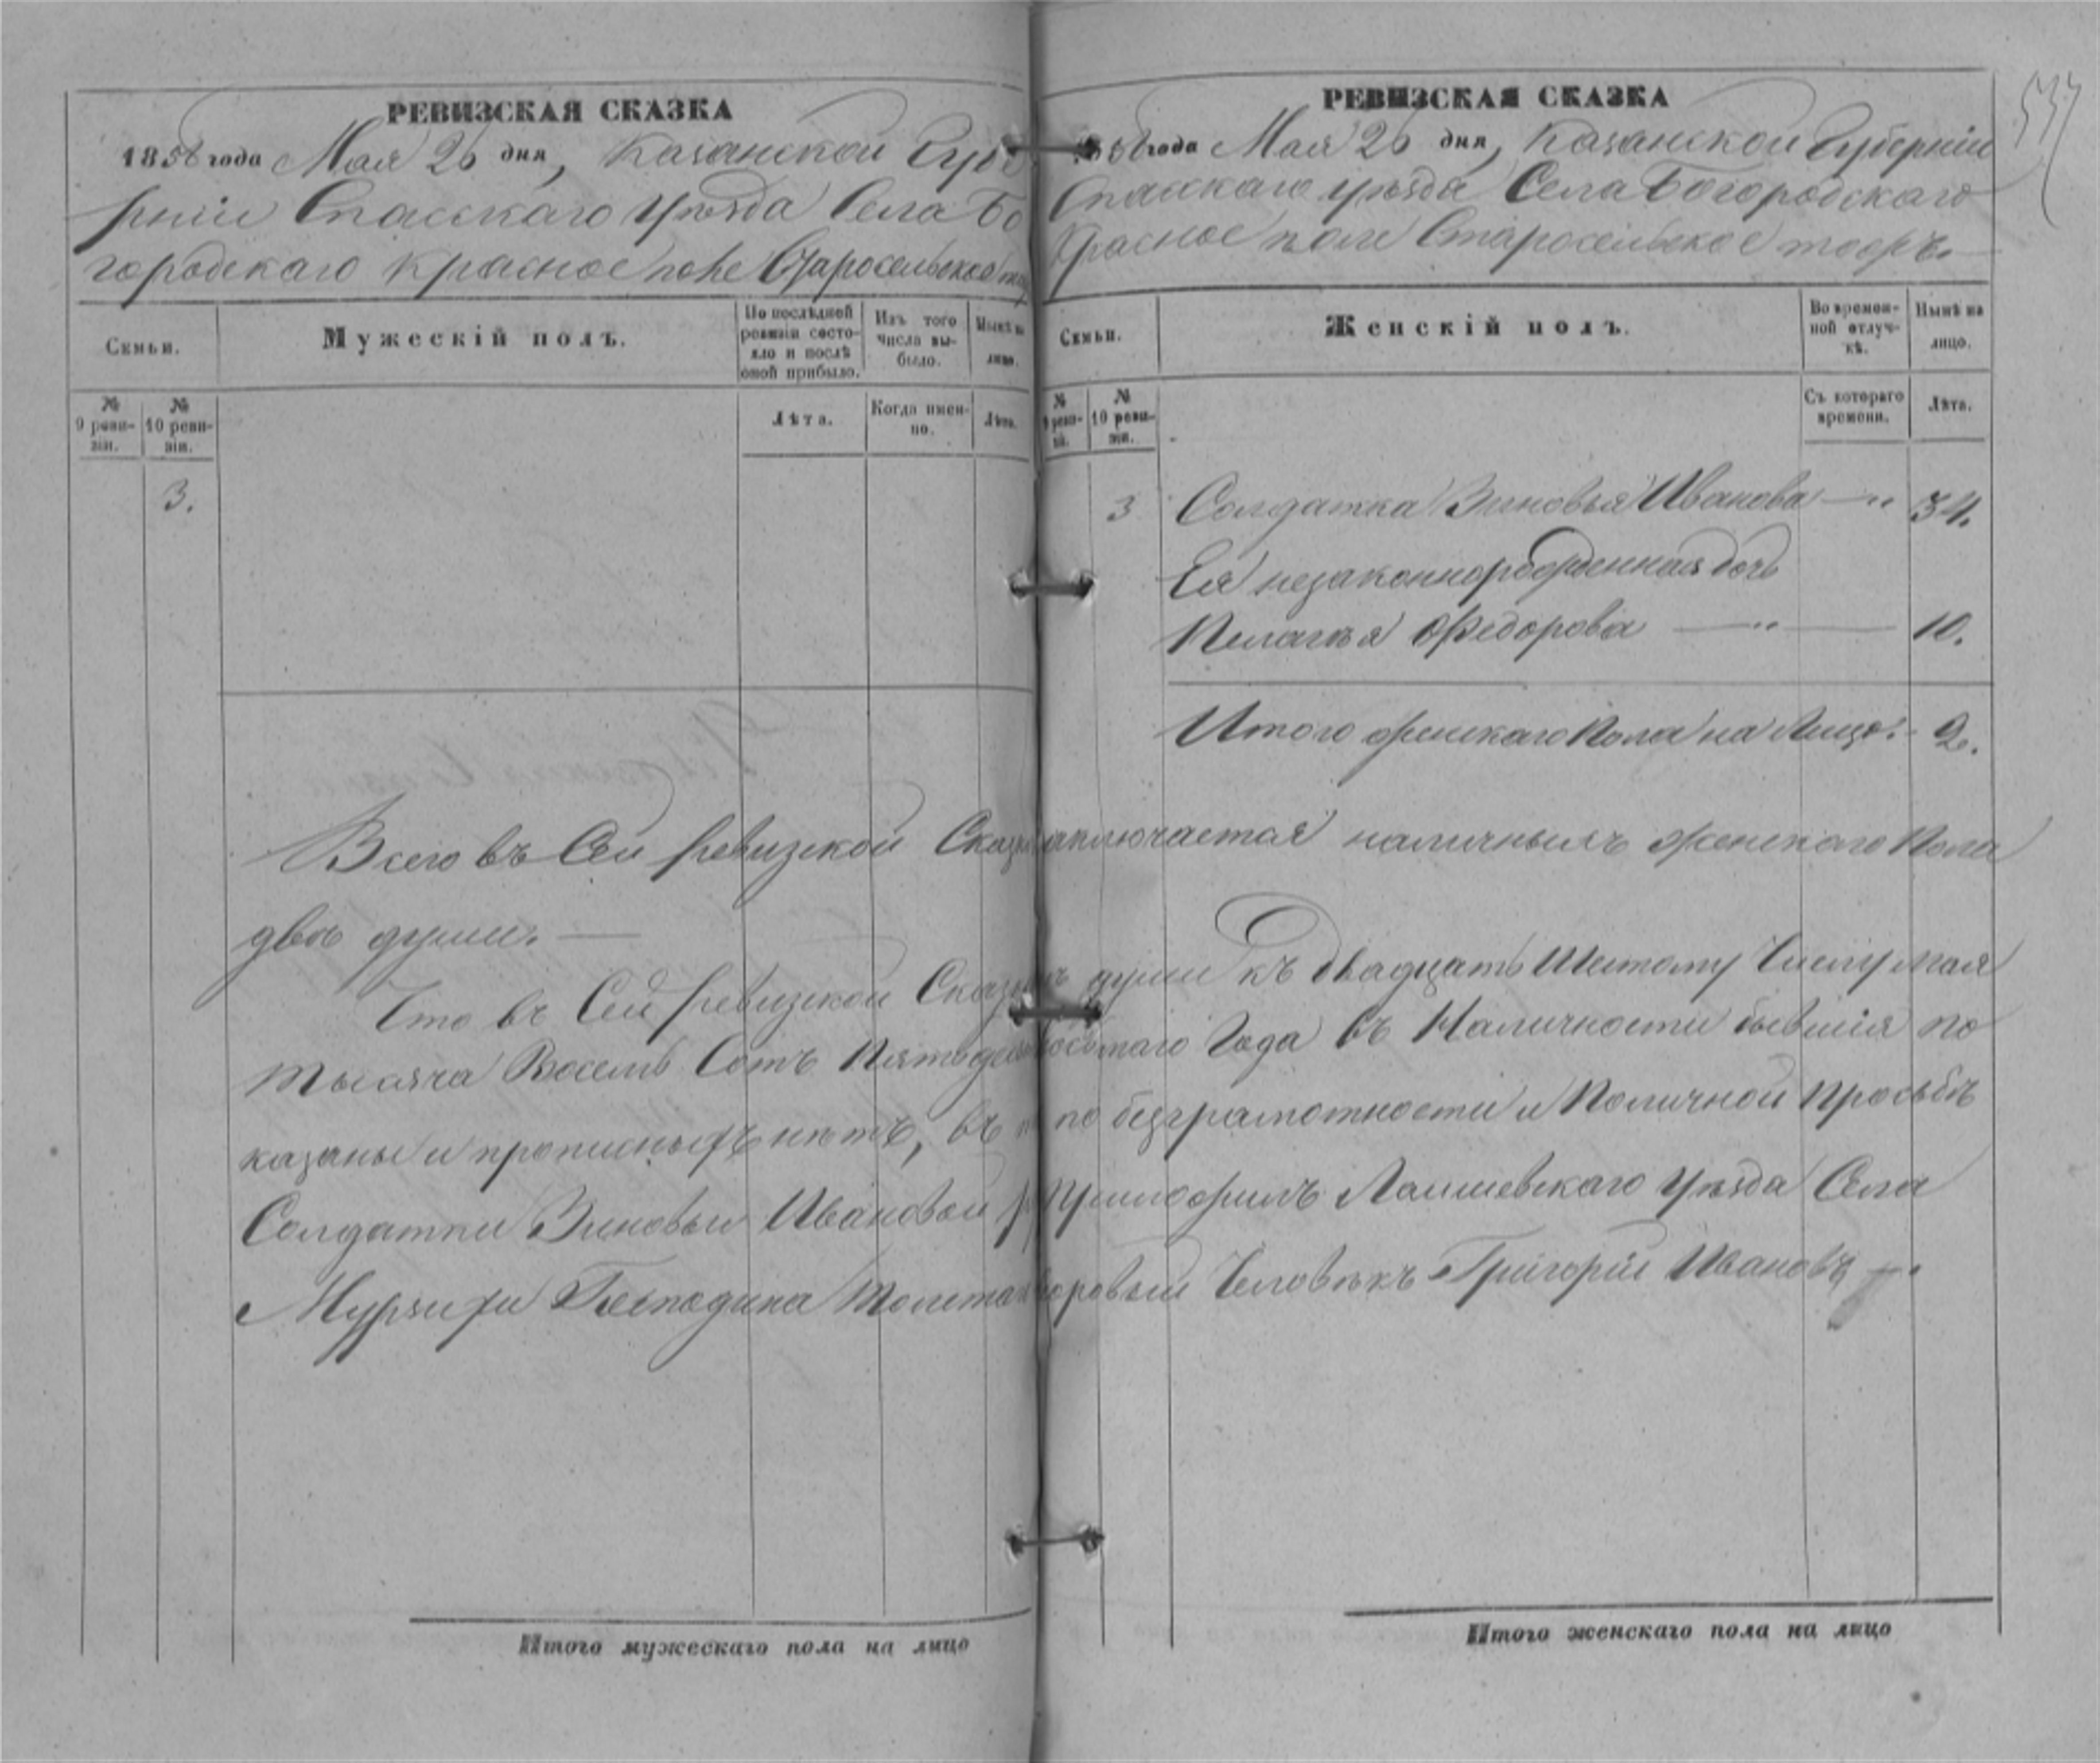 РЕВИЗСКАЯ СКАЗКА
1858 года Мая 26 дня, Казанской Губе
рніи Спасскаго уѣзда Села Бо
городскаго Красное поле Старосельское тож
Семьи.
Мужескій полъ.
По послѣдней ревизіи состояло и послѣ оной прибыло.
Изъ того числа выбыло.
Нынѣ на лицо.
№ 9 ревизіи.
№ 10 ревизіи.
Лѣта.
Когда именно.
Лѣта.
3.
Итого мужескаго пола на лицо
РЕВИЗСКАЯ СКАЗКА
1858 года Мая 26 дня, Казанской Губерніи
Спасскаго уѣзда Села Богородскаго
Красное поле Старосельское тожъ.
Семьи.
Женскій полъ.
Во временной отлучкѣ.
Нынѣ на лицо.
№ 9 ревизіи.
№ 10 ревизіи.
Съ котораго времени.
Лѣта.
3 Солдатка Зиновья Иванова — " 34.
Ея незаконнорожденная дочь
Пелагѣя Федорова — " — 10.
Итого женскаго пола на Лицо. - 2.
Всего въ Сей ревизской Сказкѣ заключается наличныхъ женскаго пола
двѣ души. —
Что въ Сей ревизской Сказкѣ всѣ души къ двадцать Шестому Числу Мая
Тысяча Восемь Сотъ Пятьдесятъ осьмаго Года въ Наличности бывшія по
казаны и прописныхъ нѣтъ, въ по безграмотности и Поличной просьбѣ
Солдатки Зиновьи Ивановой руку приложилъ Лаишевскаго уѣзда Села
Мурзихи Господина дворовый Человѣкъ Григорій Ивановъ
Итого женскаго пола на лицо
537